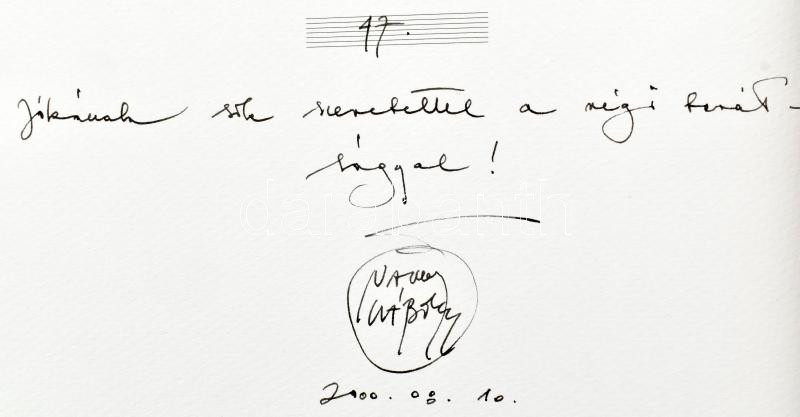 47.
Jókának sok szeretettel a régi barát-
sággal!
Nagy
Gábor
2000. 08. 10.